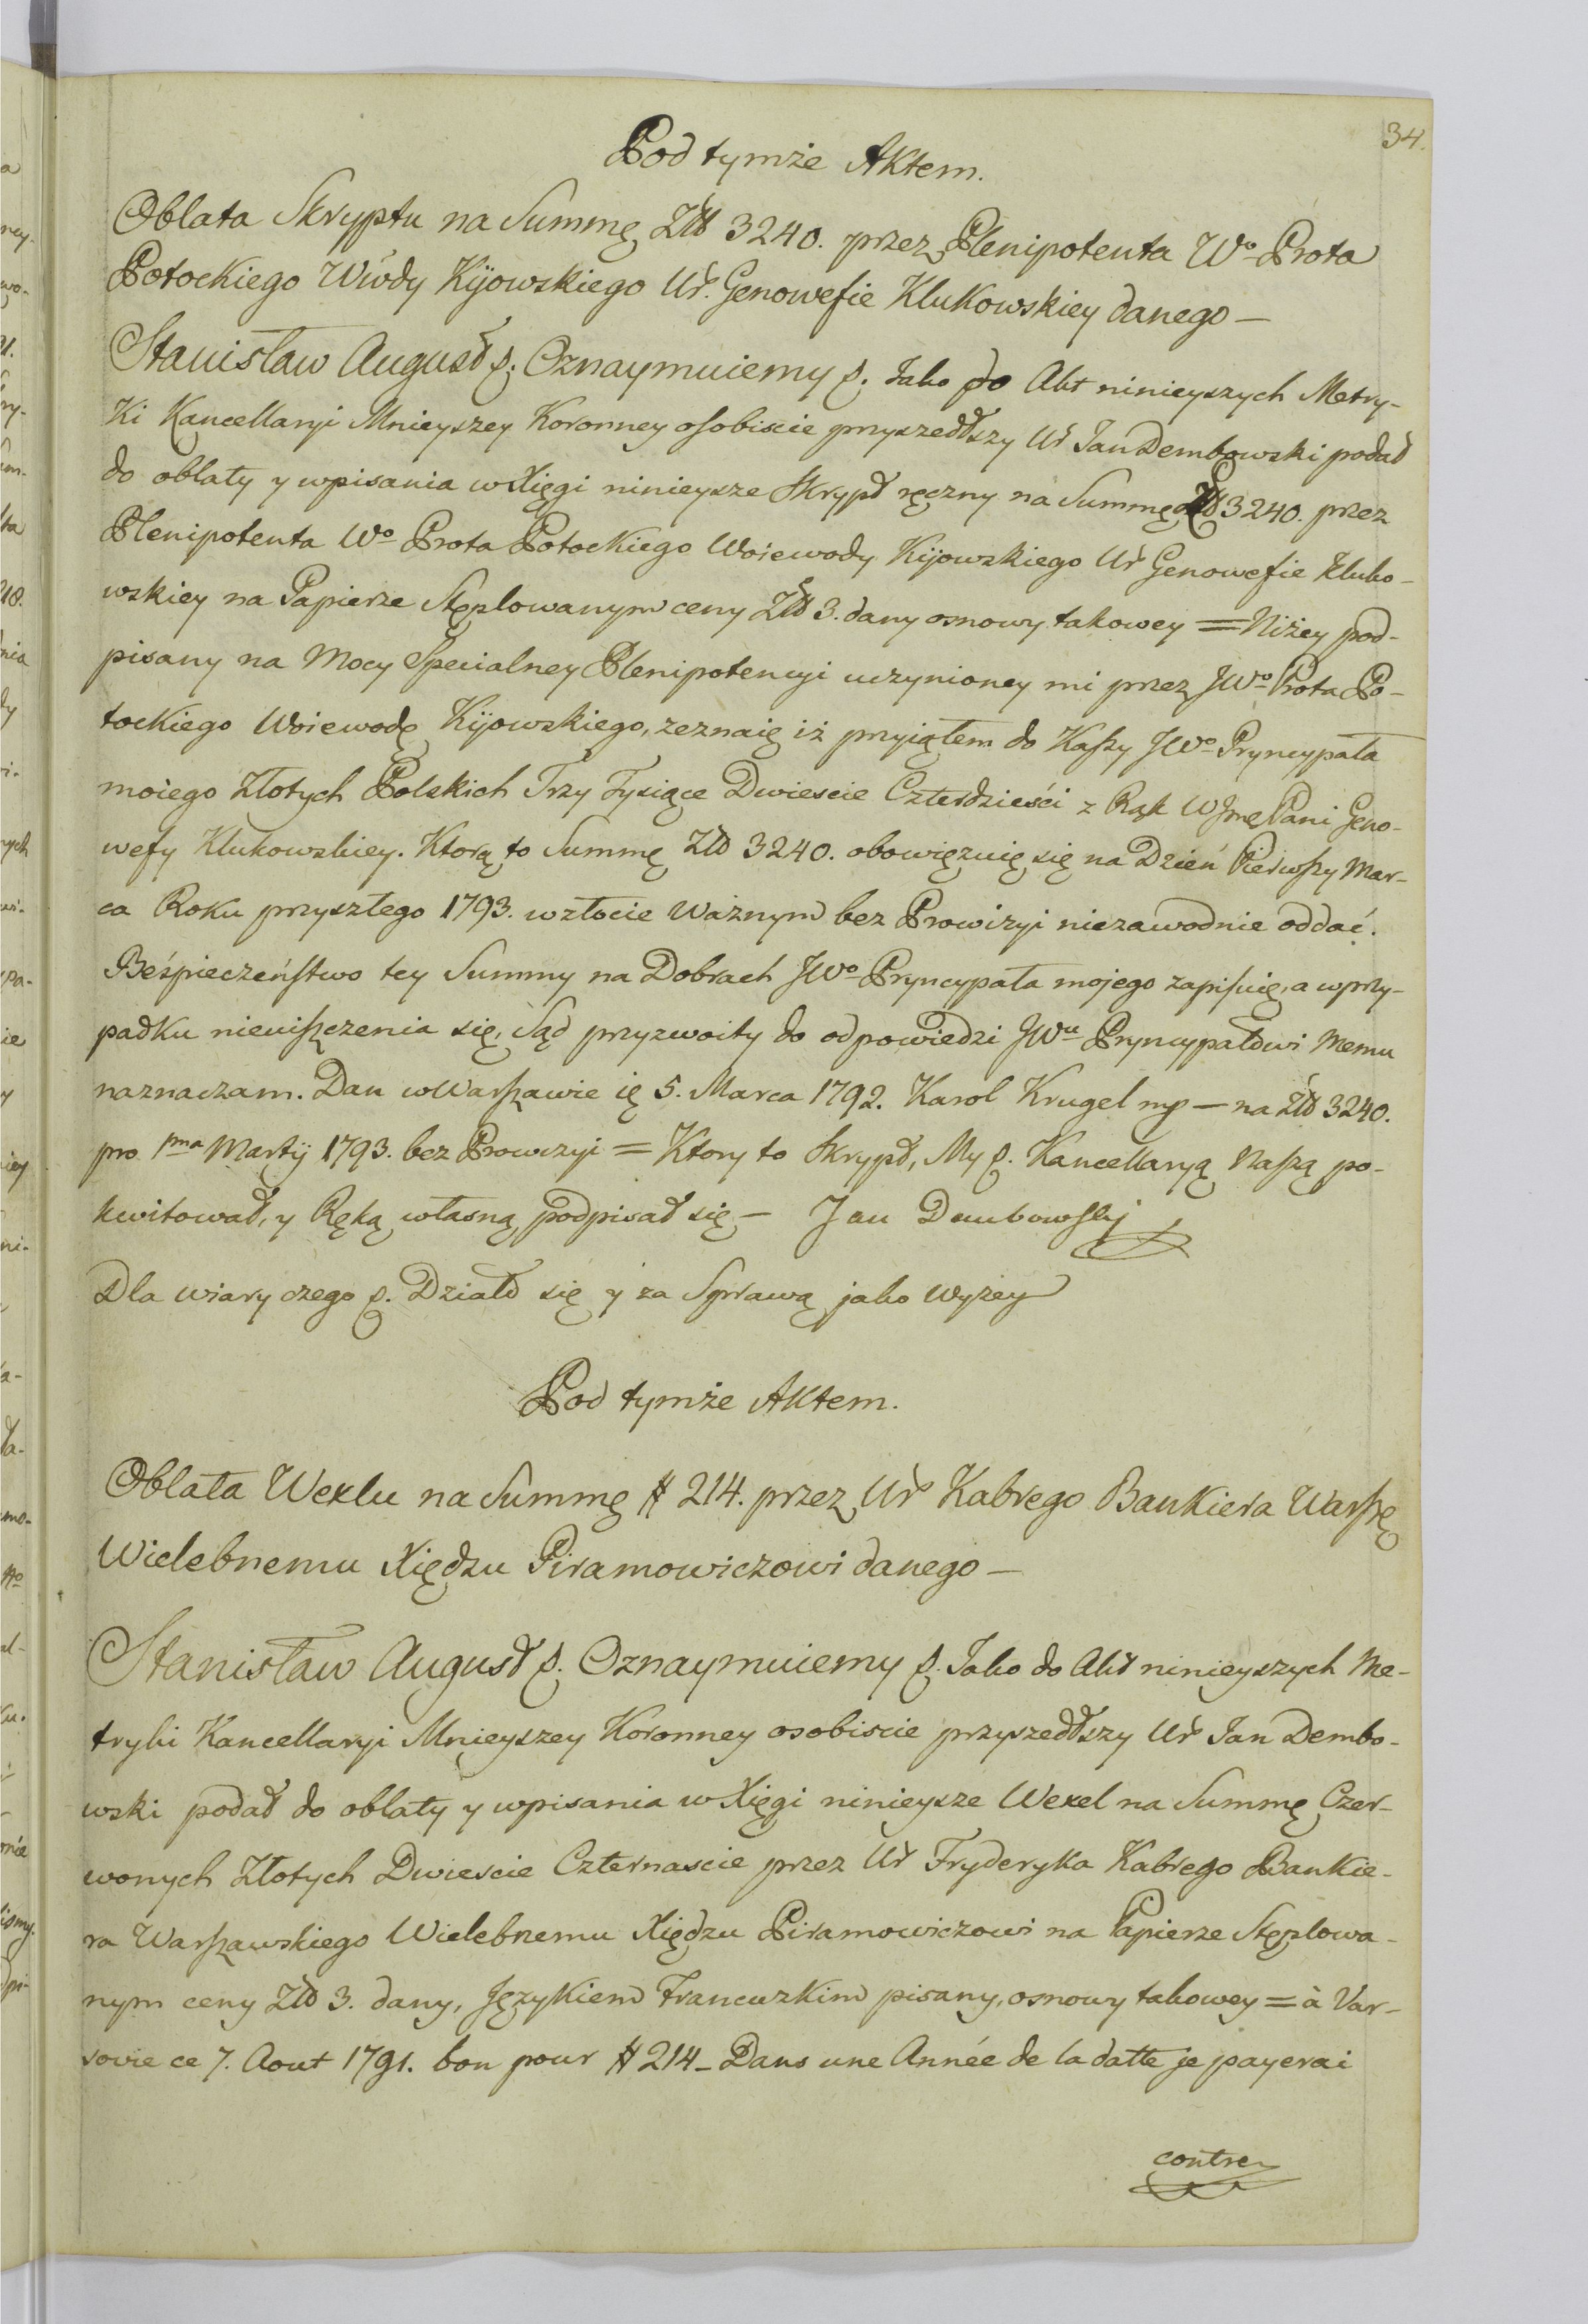 34.
Pod tymże Aktem.
Oblata Skryptu na Summę Złł 3240. przez Plenipotenta Wo Prota
Potockiego Wwdy Kijowskiego Ur. Genowefie Klukowskiey danego —
Stanisław August p. Oznaymuiemy p. Jako do Akt ninieyszych Metry-
ki Kancellaryi Mnieyszey Koronney osobiscie przyszedłszy Ur Jan Dembowski podał
do oblaty y wpisania w Xięgi ninieysze Skrypt ręczny na Summę Złł 3240. przez
Plenipotenta Wo Prota Potockiego Woiewody Kijowskiego Ur Genowefie Kluko-
wskiey na Papierze Stęplowanym ceny Złł 3. dany osnowy takowey = Niżey pod-
pisany na Mocy Specialney Plenipotencyi uczynioney mi przez JWo Prota Po-
tockiego Woiewodę Kijowskiego, zeznaię iż przyiąłem do Kassy JWo Pryncypała
moiego Złotych Polskich Trzy Tysiące Dwiescie Czterdzieści z Rąk WJmę Pani Geno-
wefy Klukowskiey. Ktorą to Summę Złł 3240. obowięzuię się na Dzień Pierwszy Mar-
ca Roku przyszłego 1793. w złocie ważnym bez Prowizyi niezawodnie oddać.
Beśpieczeństwo tey Summy na Dobrach JWo Pryncypała mojego zapisuię, a w przy-
padku nieuiszczenia się, Sąd przyzwoity do odpowiedzi JWu Pryncypałowi Memu
naznaczam. Dan w Warszawie ię 5. Marca 1792. Karol Krugel mp — na Złł 3240.
pro 1ma Martij 1793. bez Prowizyi = Ktory to Skrypt, My p. Kancellaryą Naszą po-
kwitował, y Ręką własną podpisał się — Jan Dembowskij
Dla wiary czego p. Działo się y za Sprawą jako wyżey
Pod tymże Aktem.
Oblata Wexlu na Summę # 214. przez Ur Kabrego Bankiera Warszę
Wielebnemu Xiędzu Piramowiczowi danego —
Stanisław August p. Oznaymuiemy p. Jako do Akt ninieyszych Me-
tryki Kancellaryi Mnieyszey Koronney osobiscie przyszedłszy Ur Jan Dembo-
wski podał do oblaty y wpisania w Xięgi ninieysze Wexel na Summę Czer-
wonych Złotych Dwiescie Czternascie przez Ur Fryderyka Kabrego Bankie-
ra Warszawskiego Wielebnemu Xiędzu Piramowiczowi na Papierze Stęplowa-
nym ceny Złł 3. dany, Językiem Francuzkim pisany, osnowy takowey = à Var-
sovie ce 7. Aout 1791. bon pour # 214 — Dans une Année de la datte je payerai
contre